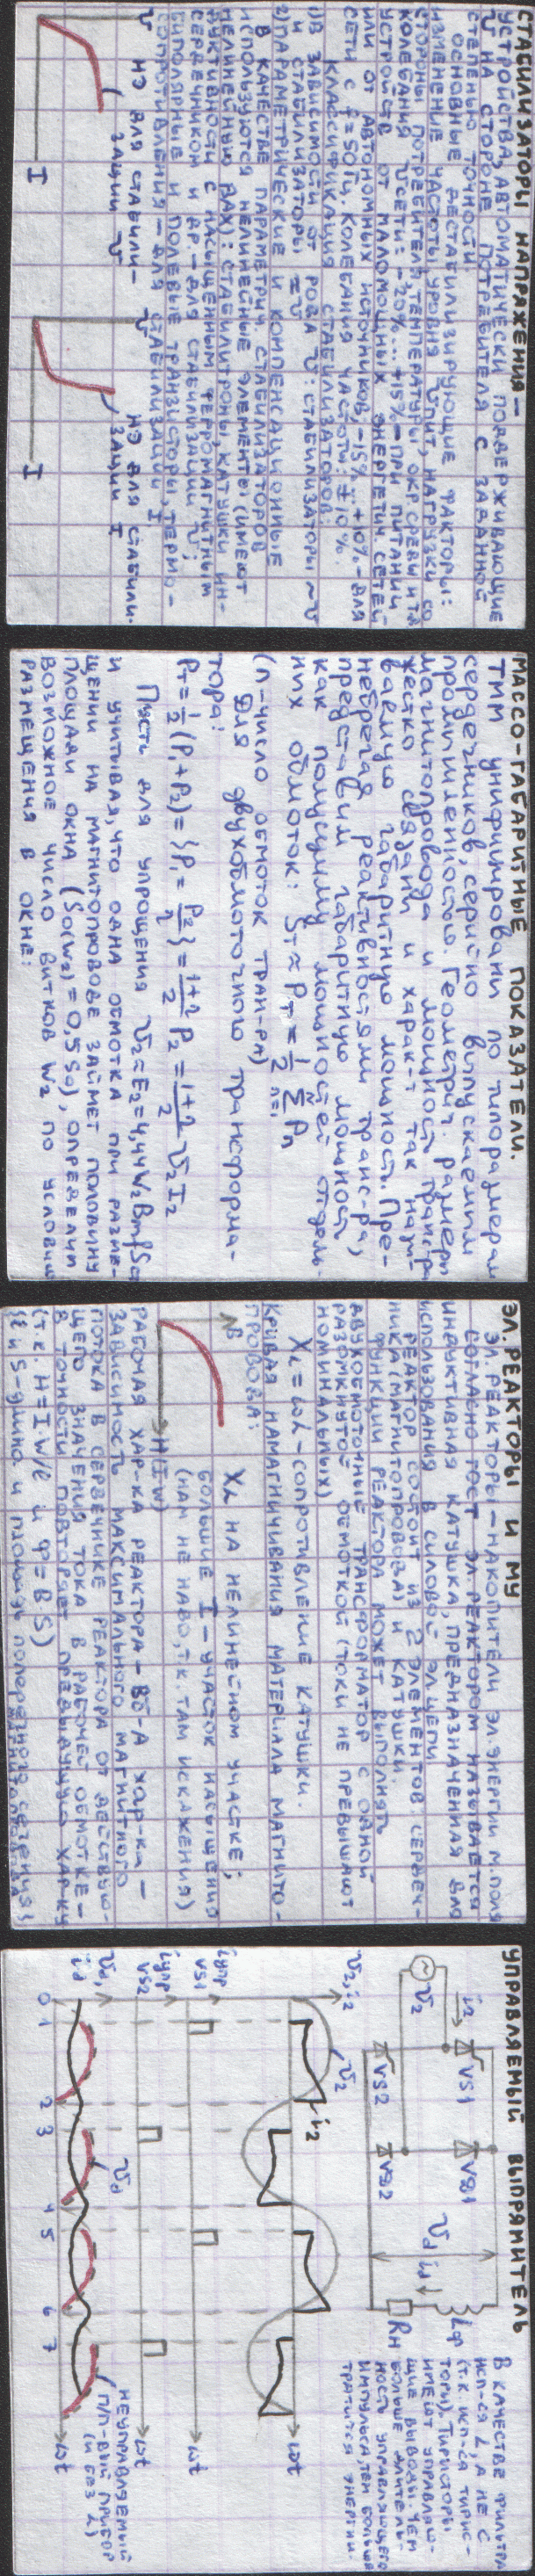 СТАБИЛИЗАТОРЫ НАПРЯЖЕНИЯ –
УСТРОЙСТВА, АВТОМАТИЧЕСКИ ПОДДЕРЖИВАЮЩИЕ
U НА СТОРОНЕ ПОТРЕБИТЕЛЯ С ЗАДАННОЙ
СТЕПЕНЬЮ ТОЧНОСТИ.
ОСНОВНЫЕ ДЕСТАБИЛИЗИРУЮЩИЕ ФАКТОРЫ:
ИЗМЕНЕНИЕ ЧАСТОТЫ, УРОВНЯ Uпит, НАГРУЗКИ СО
СТОРОНЫ ПОТРЕБИТЕЛЯ, ТЕМПЕРАТУРЫ ОКР. СРЕДЫ И ТД
КОЛЕБАНИЯ U СЕТИ: -20%...+15% – ПРИ ПИТАНИИ
УСТРОЙСТВ ОТ МАЛОМОЩНЫХ ЭНЕРГЕТИЧ. СЕТЕЙ
ИЛИ ОТ АВТОНОМНЫХ ИСТОЧНИКОВ, -15%...+10% – ДЛЯ
СЕТИ С f=50Гц. КОЛЕБАНИЯ ЧАСТОТЫ: ±10%.
КЛАССИФИКАЦИЯ СТАБИЛИЗАТОРОВ:
1) В ЗАВИСИМОСТИ ОТ РОДА U: СТАБИЛИЗАТОРЫ ~U
И СТАБИЛИЗАТОРЫ =U
2) ПАРАМЕТРИЧЕСКИЕ И КОМПЕНСАЦИОННЫЕ
В КАЧЕСТВЕ ПАРАМЕТРИЧ. СТАБИЛИЗАТОРОВ
ИСПОЛЬЗУЮТСЯ НЕЛИНЕЙНЫЕ ЭЛЕМЕНТЫ (ИМЕЮТ
НЕЛИНЕЙНУЮ ВАХ): СТАБИЛИТРОНЫ, КАТУШКИ ИН-
ДУКТИВНОСТИ С НАСЫЩЕННЫМ ФЕРРОМАГНИТНЫМ
СЕРДЕЧНИКОМ И ДР – ДЛЯ СТАБИЛИЗАЦИИ U;
БИПОЛЯРНЫЕ И ПОЛЕВЫЕ ТРАНЗИСТОРЫ, ТЕРМО-
СОПРОТИВЛЕНИЯ – ДЛЯ СТАБИЛИЗАЦИИ I
U НЭ ДЛЯ СТАБИЛИ-
ЗАЦИИ U
I
U НЭ ДЛЯ СТАБИЛИ-
ЗАЦИИ I
I
МАССО-ГАБАРИТНЫЕ ПОКАЗАТЕЛИ.
ТИМ УНИФИЦИРОВАНЫ ПО ТИПОРАЗМЕРАМ
СЕРДЕЧНИКОВ, СЕРИЙНО ВЫПУСКАЕМЫМ
ПРОМЫШЛЕННОСТЬЮ. ГЕОМЕТРИЧ. РАЗМЕРЫ
МАГНИТОПРОВОДА И МОЩНОСТЬ ТРАНС-РА
ЖЕСТКО СВЯЗАНЫ И ХАРАК-Т ТАК НАЗЫ-
ВАЕМУЮ ГАБАРИТНУЮ МОЩНОСТЬ. ПРЕ-
НЕБРЕГАЯ РЕАКТИВНОСТЯМИ ТРАНС-РА,
ПРЕДСТАВИМ ГАБАРИТНУЮ МОЩНОСТЬ
КАК ПОЛУСУММУ МОЩНОСТЕЙ ОТДЕЛЬ-
НЫХ ОБМОТОК: Sт≈Pт=1/2 Σ Pn n=1
(n-ЧИСЛО ОБМОТОК ТРАН-РА)
ДЛЯ ДВУХОБМОТОЧНОГО ТРАНСФОРМА-
ТОРА:
Pт=1/2(P1+P2)={P1=P2/η}=(1+η)/2 P2=(1+η)/2 U2I2
ПУСТЬ ДЛЯ УПРОЩЕНИЯ U2≈E2=4,44W2BmfSc
И УЧИТЫВАЯ, ЧТО ОДНА ОБМОТКА ПРИ РАЗМЕ-
ЩЕНИИ НА МАГНИТОПРОВОДЕ ЗАЙМЕТ ПОЛОВИНУ
ПЛОЩАДИ ОКНА (So(W2)=0,5So), ОПРЕДЕЛИМ
ВОЗМОЖНОЕ ЧИСЛО ВИТКОВ W2 ПО УСЛОВИЮ
РАЗМЕЩЕНИЯ В ОКНЕ:
ЭЛ. РЕАКТОРЫ И МУ
ЭЛ. РЕАКТОРЫ – НАКОПИТЕЛИ ЭЛ. ЭНЕРГИИ М. ПОЛЯ
СОГЛАСНО ГОСТ ЭЛ. РЕАКТОРОМ НАЗЫВАЕТСЯ
ИНДУКТИВНАЯ КАТУШКА, ПРЕДНАЗНАЧЕННАЯ ДЛЯ
ИСПОЛЬЗОВАНИЯ В СИЛОВОЙ ЭЛ. ЦЕПИ
РЕАКТОР СОСТОИТ ИЗ 2 ЭЛЕМЕНТОВ: СЕРДЕЧ-
НИКА (МАГНИТОПРОВОДА) И КАТУШКИ.
ФУНКЦИИ РЕАКТОРА МОЖЕТ ВЫПОЛНЯТЬ
ДВУХОБМОТОЧНЫЙ ТРАНСФОРМАТОР С ОДНОЙ
РАЗОМКНУТОЙ ОБМОТКОЙ (ТОКИ НЕ ПРЕВЫШАЮТ
НОМИНАЛЬНЫХ)
XL=ωL – СОПРОТИВЛЕНИЕ КАТУШКИ.
КРИВАЯ НАМАГНИЧИВАНИЯ МАТЕРИАЛА МАГНИТО-
ПРОВОДА:
B
XL НА НЕЛИНЕЙНОМ УЧАСТКЕ;
БОЛЬШИЕ I – УЧАСТОК НАСЫЩЕНИЯ
(НАМ НЕ НАДО, Т.К. ТАМ ИСКАЖЕНИЯ)
H(IW)
РАБОЧАЯ ХАР-КА РЕАКТОРА – ВБ-А ХАР-КА –
ЗАВИСИМОСТЬ МАКСИМАЛЬНОГО МАГНИТНОГО
ПОТОКА В СЕРДЕЧНИКЕ РЕАКТОРА ОТ ДЕЙСТВУЮ-
ЩЕГО ЗНАЧЕНИЯ ТОКА В РАБОЧЕЙ ОБМОТКЕ –
В ТОЧНОСТИ ПОВТОРЯЕТ ПРЕДЫДУЩУЮ ХАР-КУ
(Т.К. H=IW/ℓ И Φ=BS)
(ℓ И S – ДЛИНА И ПЛОЩАДЬ ПОПЕРЕЧНОГО СЕЧЕНИЯ
УПРАВЛЯЕМЫЙ ВЫПРЯМИТЕЛЬ
VS1 VD1
i2
U2
VS2 VD2
Ud id
Lф
Rн
В КАЧЕСТВЕ ФИЛЬТРА
ИСП-СЯ L, А НЕ С
(Т.К. ИСП-СЯ ТИРИС-
ТОРЫ). ТИРИСТОРЫ
ИМЕЮТ УПРАВЛЯЮ-
ЩИЕ ВЫВОДЫ. ЧЕМ
БОЛЬШЕ ДЛИТЕЛЬ-
НОСТЬ УПРАВЛЯЮЩЕГО
ИМПУЛЬСА, ТЕМ БОЛЬШЕ
ТРАТИТСЯ ЭНЕРГИИ.
U2, i2
U2
i2
ωt
iупр
VS1
ωt
iупр
VS2
ωt
Ud,
id
Ud
НЕУПРАВЛЯЕМЫЙ
П/П-ВЫЙ ПРИБОР
(И БЕЗ L)
ωt
0 1 2 3 4 5 6 7